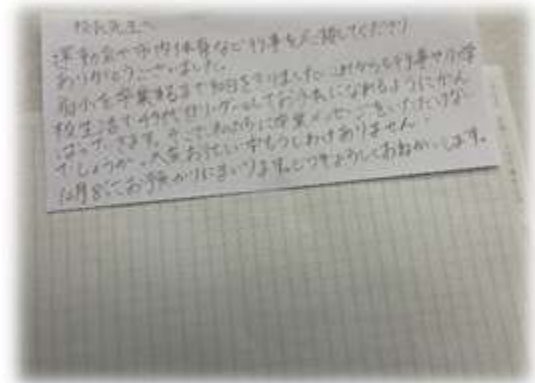 校長先生へ
運動会や市内体育など行事を応援してくださり
ありがとうございました。
小を卒業するまで 日をきりました。これからも行事や小学
校生活で リーダーとしてお手本になれるようにがん
ばっていきます。 そこで私たちに卒業メッセージをいただけない
でしょうか。大変お忙しい中もうしわけありません。
12月8にお預かりにまいります。どうぞよろしくおねがいします。